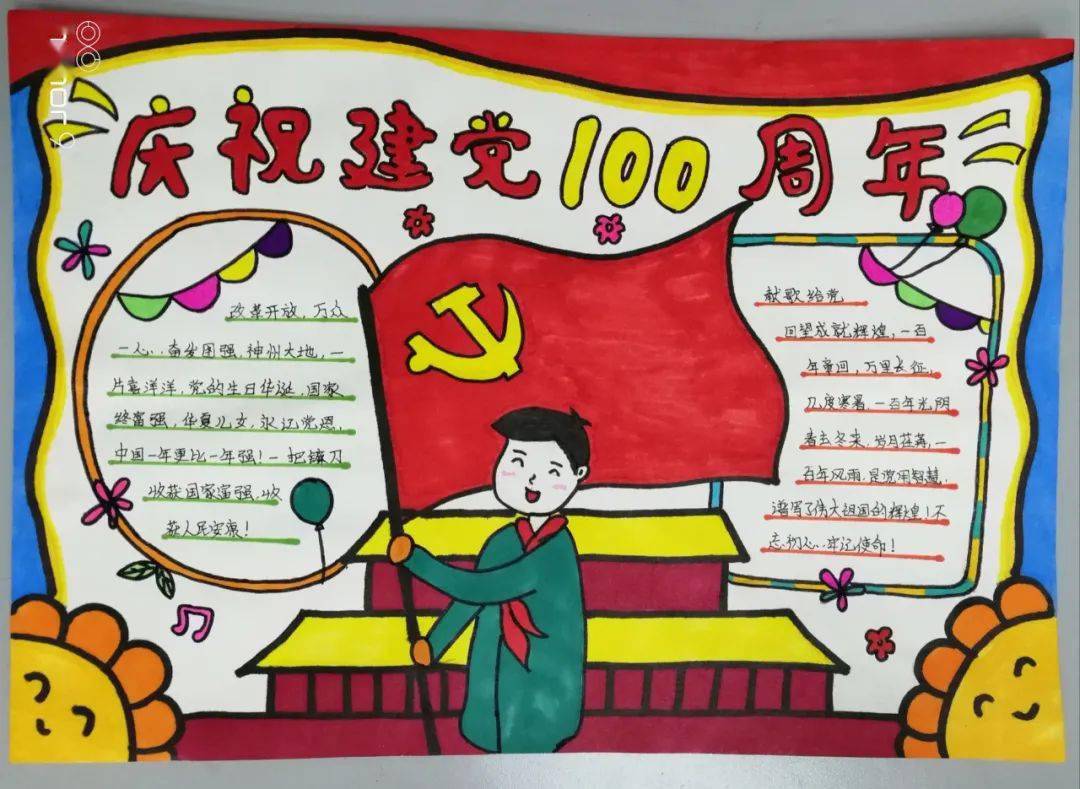 庆祝建党100周年
改革开放,万众
一心,奋发图强,神州大地,一
片喜洋洋,党的生日华诞,国家
终富强,华夏儿女,永记党恩,
中国一年更比一年强!一把镰刀
收获国家富强,收
获人民安康!
献歌给党
回望成就辉煌,一百
年童问,万里长征,
几度寒暑,一百年光阴
春去冬来,岁月荏苒,一
百年风雨,是党用智慧,
谱写了伟大祖国的辉煌!不
忘初心,牢记使命!